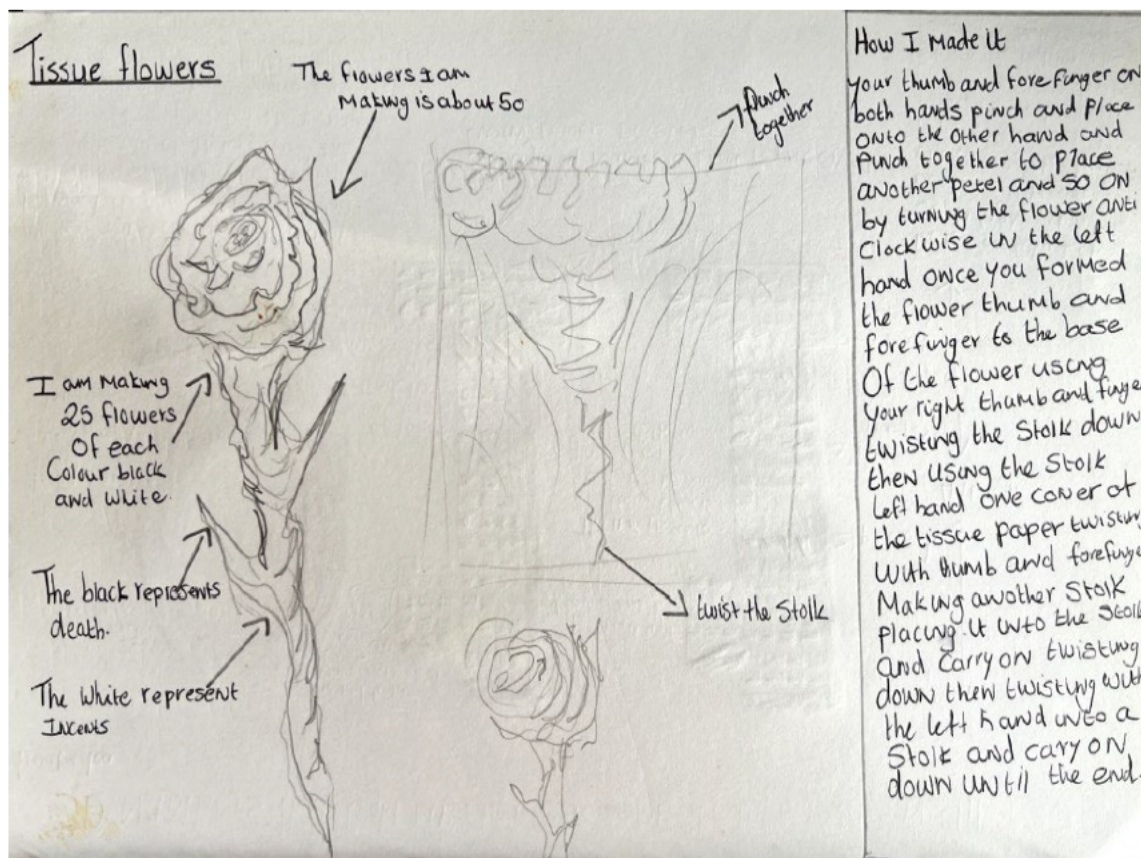 Tissue flowers
The flowers I am
Making is about 50
Pinch
together
I am Making
25 flowers
Of each
Colour black
and white.
The black represents
death.
The White represent
Incents
twist the Stolk
How I Made it
your thumb and forefinger on
both hands pinch and place
onto the other hand and
Pinch together to place
another petel and so on
by turning the flower anti
clockwise in the left
hand once you formed
the flower thumb and
forefinger to the base
Of the flower using
your right thumb and finge
twisting the Stolk down
then using the Stolk
left hand one coner of
the tissue paper twistin
with thumb and forefinge
Making another Stolk
placing it into the Stolk
and carry on twisting
down then twisting with
the left hand into a
Stolk and cary on
down until the end.